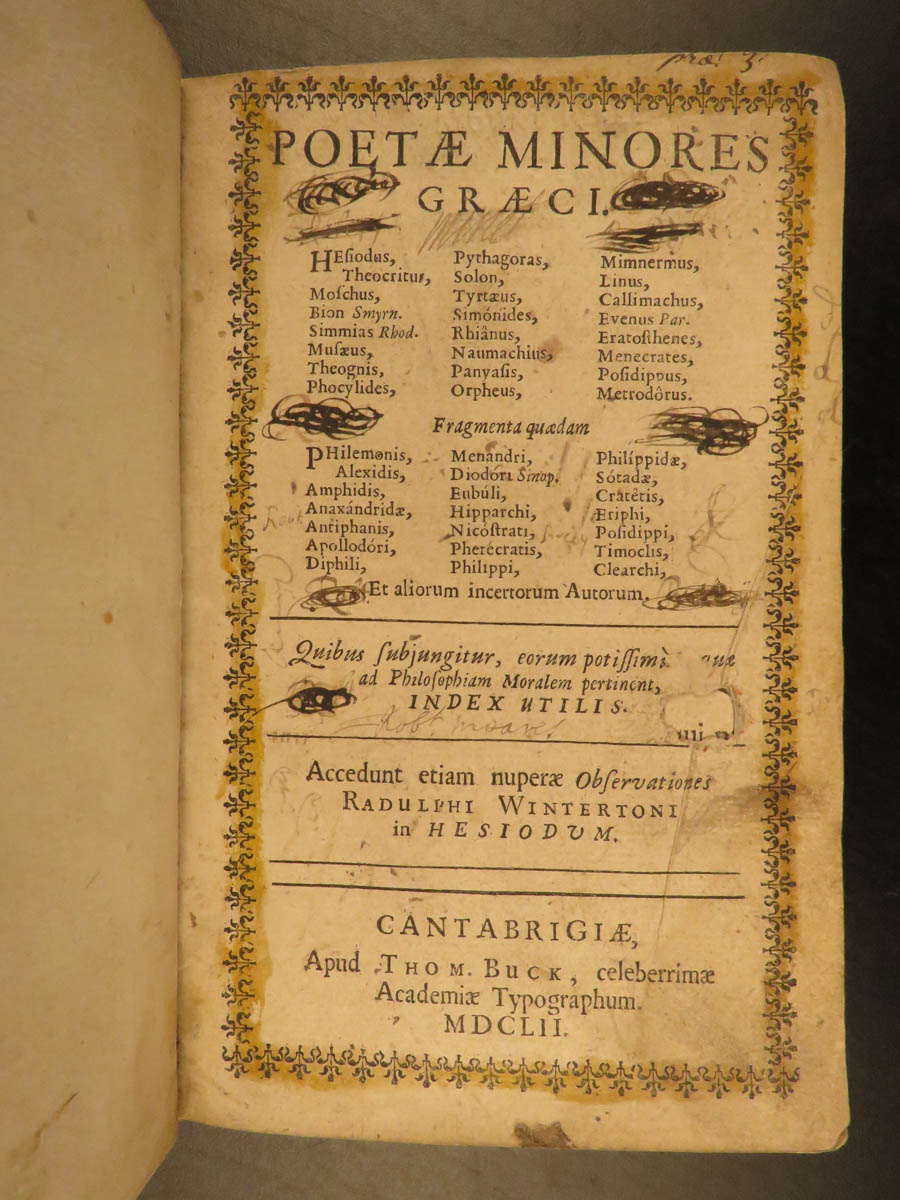 præ: 3:
POETÆ MINORES
GRÆCI.
HEſiodus,
Theocritus,
Moſchus,
Bion Smyrn.
Simmias Rhod.
Muſæus,
Theognis,
Phocylides,
Pythagoras,
Solon,
Tyrtæus,
Simónides,
Rhiânus,
Naumachius,
Panyaſis,
Orpheus,
Mimnermus,
Linus,
Callimachus,
Evenus Par.
Eratoſthenes,
Menecrates,
Poſidippus,
Metrodôrus.
Fragmenta quædam
PHilemonis,
Alexidis,
Amphidis,
Anaxándridæ,
Antiphanis,
Apollodóri,
Diphili,
Menandri,
Diodóri Sinop.
Eubúli,
Hipparchi,
Nicóſtrati,
Pherécratis,
Philippi,
Philíppidæ,
Sótadæ,
Cratêtis,
Eriphi,
Poſidippi,
Timoclis,
Clearchi,
Et aliorum incertorum Autorum.
Quibus ſubjungitur, eorum potiſſimù
ad Philoſophiam Moralem pertinent,
INDEX UTILIS.
Robt
Accedunt etiam nuperæ Obſervationes
RADULPHI WINTERTONI
in HESIODVM.
CANTABRIGIÆ,
Apud THOM. BUCK, celeberrimæ
Academiæ Typographum.
MDCLII.